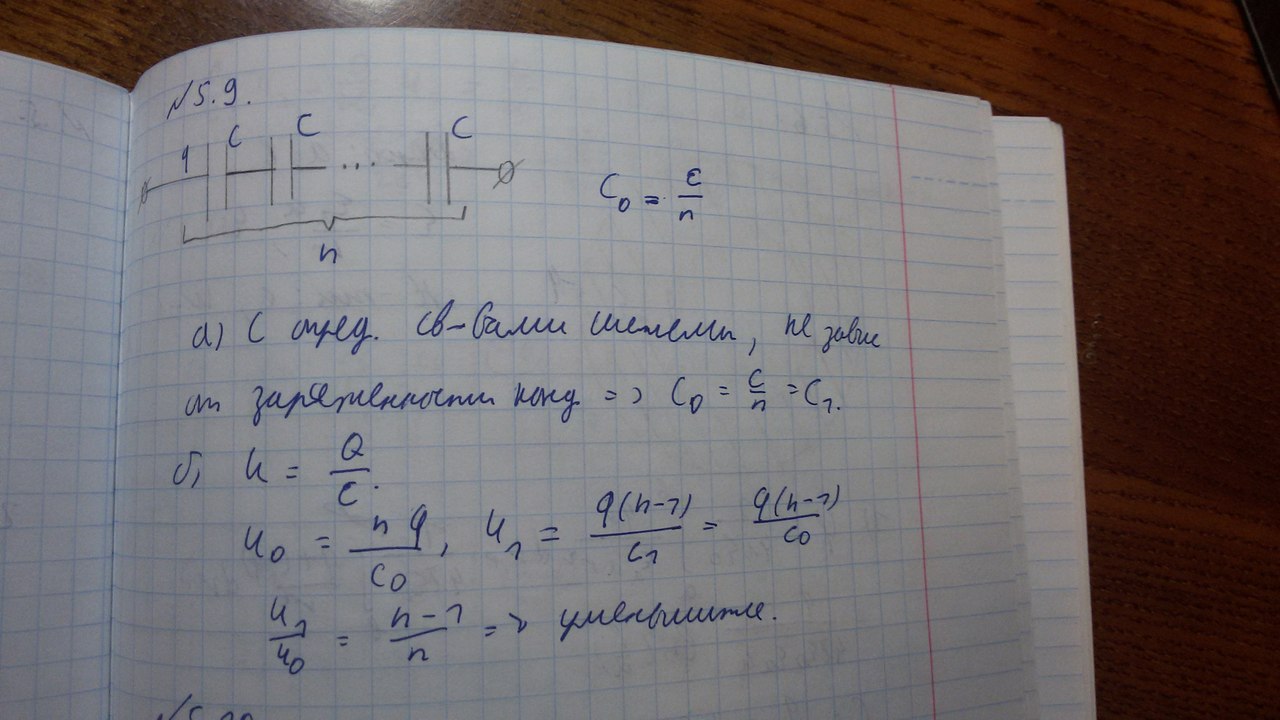 №5.9.
q C C ... C
n
C₀ = ε/n
а) C опред. св-вами системы, не завис
от заряженности конд => C₀ = C/n = C₁.
б) U = Q/C.
U₀ = nq/C₀, U₁ = q(n-1)/C₁ = q(n-1)/C₀
U₁/U₀ = n-1/n => уменьшится.